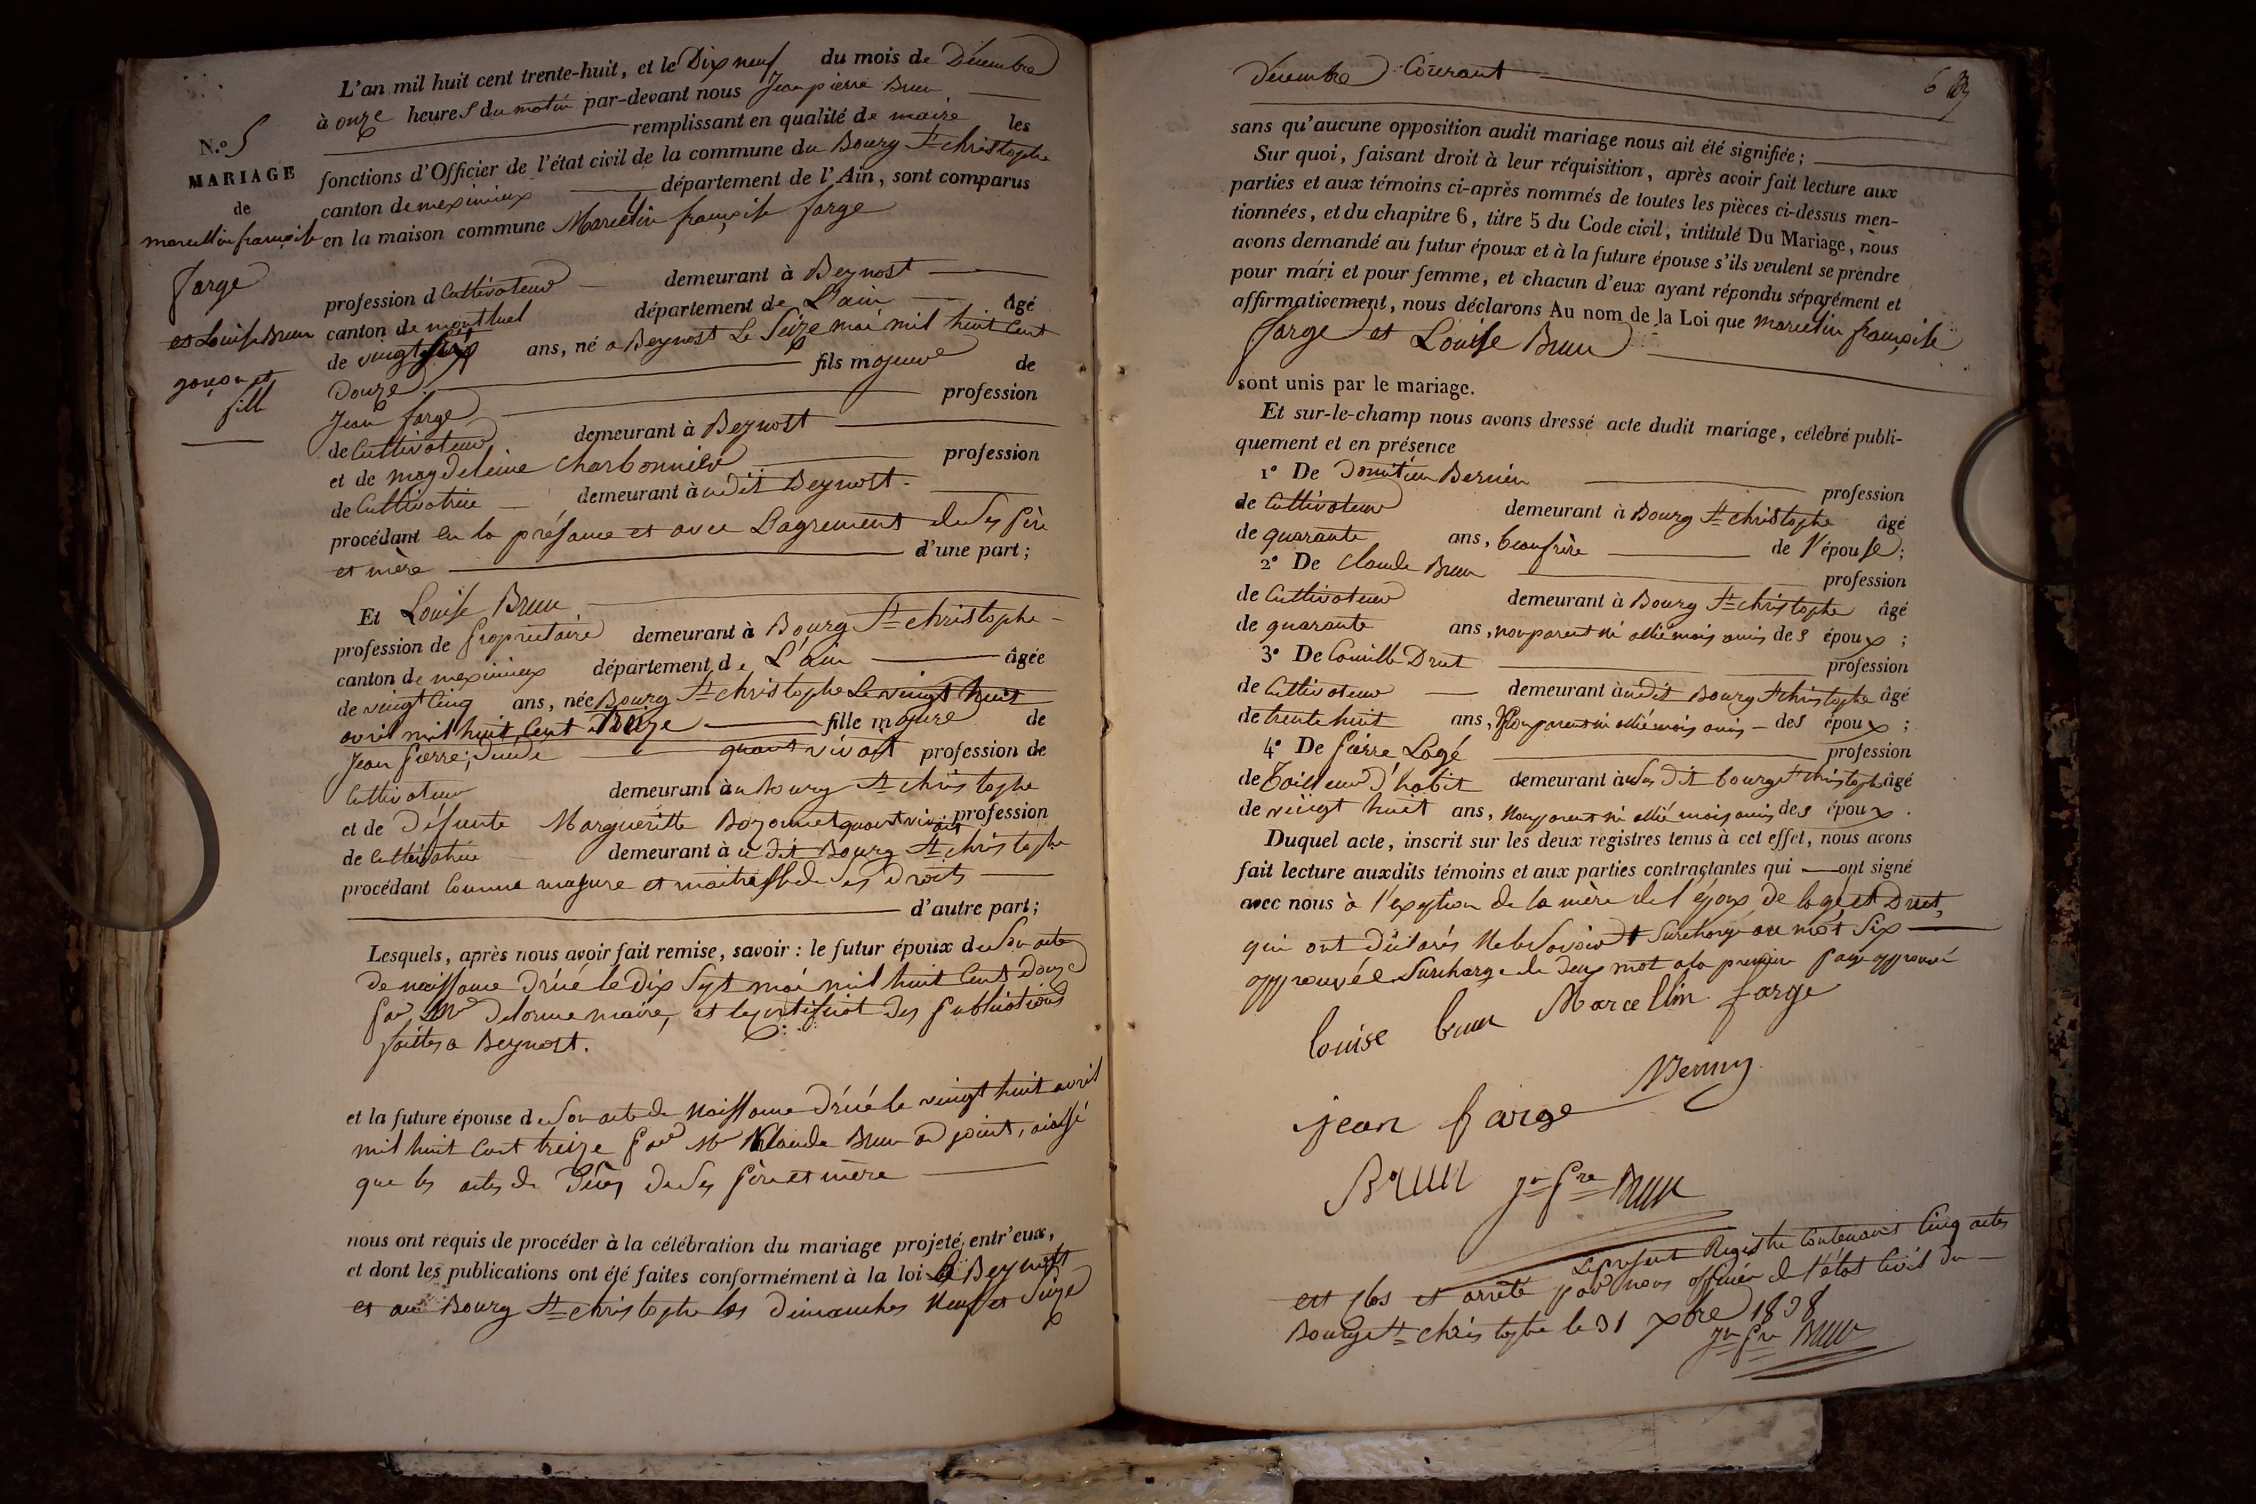 L'an mil huit cent trente-huit, et le Dix neuf du mois de Décembre
à onze heures du matin par-devant nous Jean pierre Brun
remplissant en qualité de maire les
fonctions d'Officier de l'état civil de la commune du Bourg St christophe
canton de meximieux département de l'Ain, sont comparus
en la maison commune Marcelin françois farge
profession d Cultivateur demeurant à Beynost
canton de montluel département de L'ain âgé
de vingt six ans, né a Beynost Le Seize mai mil huit Cent
Douze fils majeur de
Jean farge profession
de Cultivateur demeurant à Beynost
et de magdeleine charbonnier profession
de Cultivatrice demeurant à udit Beynost
procédant en la présance et avec L'agrement de Ses père
et mère d'une part;
Et Louise Brun
profession de propriétaire demeurant à Bourg St christophe
canton de meximieux département de L'ain âgée
de vingt Cinq ans, née Bourg St christophe Le vingt huit
avril mil huit Cent treize fille majeure de
Jean pierre, quant vivait profession de
Cultivateur demeurant à u Bourg St christophe
et de Défunte Margueritte quant vivait profession
de Cultivatrice demeurant à u dit Bourg St christophe
procédant Comme majeure et maitresse de Ses Droits
d'autre part;
Lesquels, après nous avoir fait remise, savoir : le futur époux de Son acte
de naissance Dréité le Dix Sept mai mil huit Cent Douze
par Mr Delorme maire, et le certificat des publications
faittes a Beynost.
et la future épouse de Son acte de Naissance le vingt huit avril
mil huit Cent treize par Mr Claude Brun adjoint, ainssi
que les actes de Décès de Ses père et mère
nous ont requis de procéder à la célébration du mariage projeté entr'eux,
et dont les publications ont été faites conformément à la loi à Beynost
et au Bourg St christophe les Dimanches Neuf et Seize
N.º 5
MARIAGE
de
marcellin françois
farge
et Louise Brun
garçon et
fille
Décembre Courant
sans qu'aucune opposition audit mariage nous ait été signifiée;
Sur quoi, faisant droit à leur réquisition, après avoir fait lecture aux
parties et aux témoins ci-après nommés de toutes les pièces ci-dessus men-
tionnées, et du chapitre 6, titre 5 du Code civil, intitulé Du Mariage, nous
avons demandé au futur époux et à la future épouse s'ils veulent se prendre
pour mari et pour femme, et chacun d'eux ayant répondu séparément et
affirmativement, nous déclarons Au nom de la Loi que marcelin françois
farge et Louise Brun
sont unis par le mariage.
Et sur-le-champ nous avons dressé acte dudit mariage, célébré publi-
quement et en présence
1º De Domitien
profession
de Cultivateur demeurant à Bourg St christophe âgé
de quarante ans, beaufrère de l'épouse;
2º De Claude Brun profession
de Cultivateur demeurant à Bourg St christophe âgé
de quarante ans, non parent ni allié mais amis des époux;
3º De Camille Druet profession
de Cultivateur demeurant à udit Bourg St christophe âgé
de trente huit ans, Non parent ni allié mais amis des époux;
4º De pierre Lagé profession
de Tailleur d'habit demeurant à dit bourg St christophe âgé
de vingt huit ans, Non parent ni allié mais amis des époux.
Duquel acte, inscrit sur les deux registres tenus à cet effet, nous avons
fait lecture auxdits témoins et aux parties contractantes qui ont signé
avec nous à l'exeption de la mère de l'époux de lagé et Druet,
qui ont déclarés Ne le Savoir Surcharge au mot Six
approuvée Surcharge de Deux mot a la première page approuvée
louise brun Marcellin farge
jean farge
Brun Jn Pre Brun
Le présent Registre Contenant Cinq actes
est clos et arrêté par nous officier de l'état Civil du
Bourg St christophe le 31 xbre 1838
Jn Pre Brun